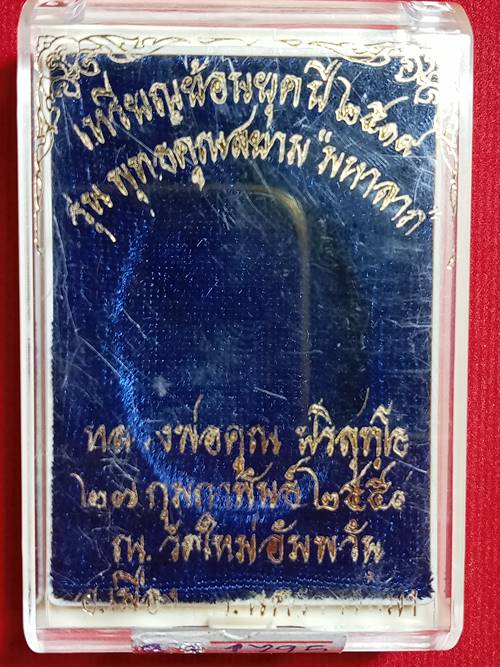 เหรียญย้อนยุค ปี ๒๕๑๙
รุ่น พุทธคุณสยาม "มหาลาภ"
หลวงพ่อคูณ ปริสุทฺโธ
๒๗ กุมภาพันธ์ ๒๕๕๑
ณ. วัดใหม่อัมพวัน
อ.เมือง